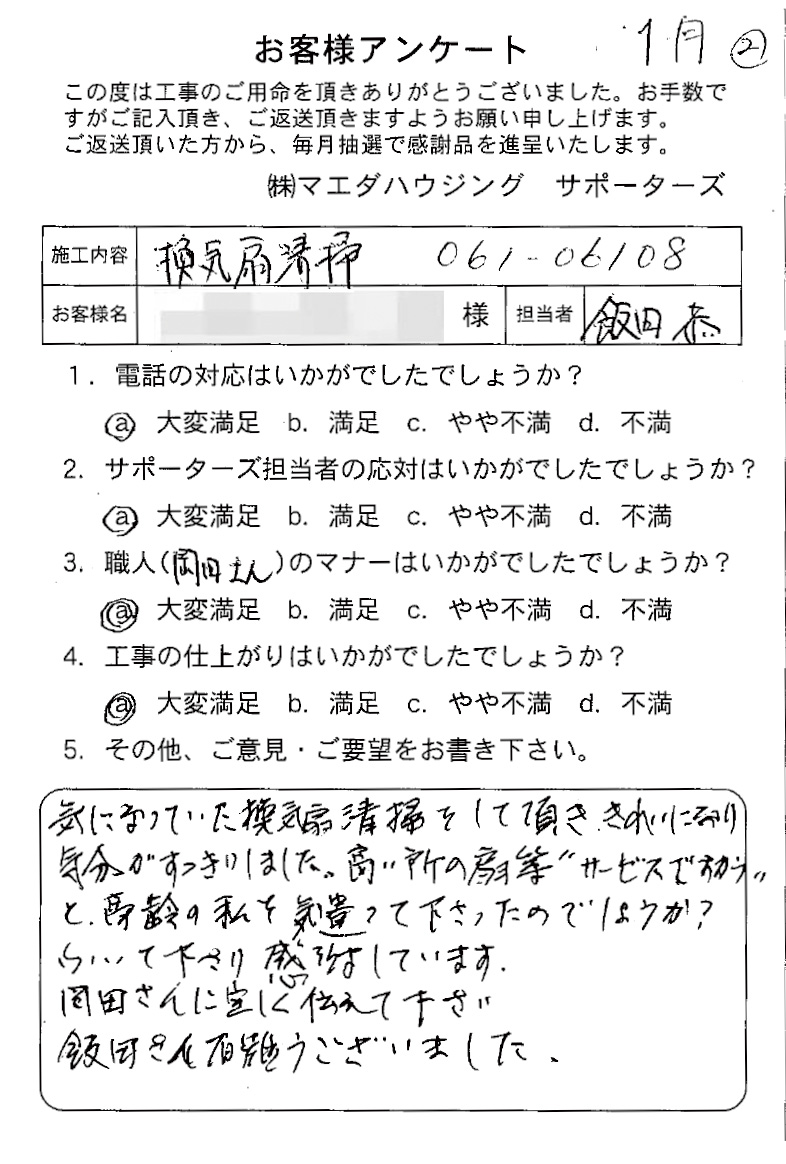 1月 ②
お客様アンケート
この度は工事のご用命を頂きありがとうございました。お手数で
すがご記入頂き、ご返送頂きますようお願い申し上げます。
ご返送頂いた方から、毎月抽選で感謝品を進呈いたします。
㈱マエダハウジング サポーターズ
施工内容 換気扇清掃 061-06108
お客様名 様 担当者 飯田 恭
1. 電話の対応はいかがでしたでしょうか?
a 大変満足 b. 満足 c. やや不満 d. 不満
2. サポーターズ担当者の応対はいかがでしたでしょうか?
a 大変満足 b. 満足 c. やや不満 d. 不満
3. 職人(岡田さん)のマナーはいかがでしたでしょうか?
a 大変満足 b. 満足 c. やや不満 d. 不満
4. 工事の仕上がりはいかがでしたでしょうか?
a 大変満足 b. 満足 c. やや不満 d. 不満
5. その他、ご意見・ご要望をお書き下さい。
気になっていた換気扇清掃をして頂き、きれいになり
気分がすっきりしました。高い所の扇等"サービスですから"
と、高齢の私を気遣って下さったのでしょうか?
ふいて下さり感謝しています。
岡田さんに宜しく伝えて下さい
飯田さん有難うございました。